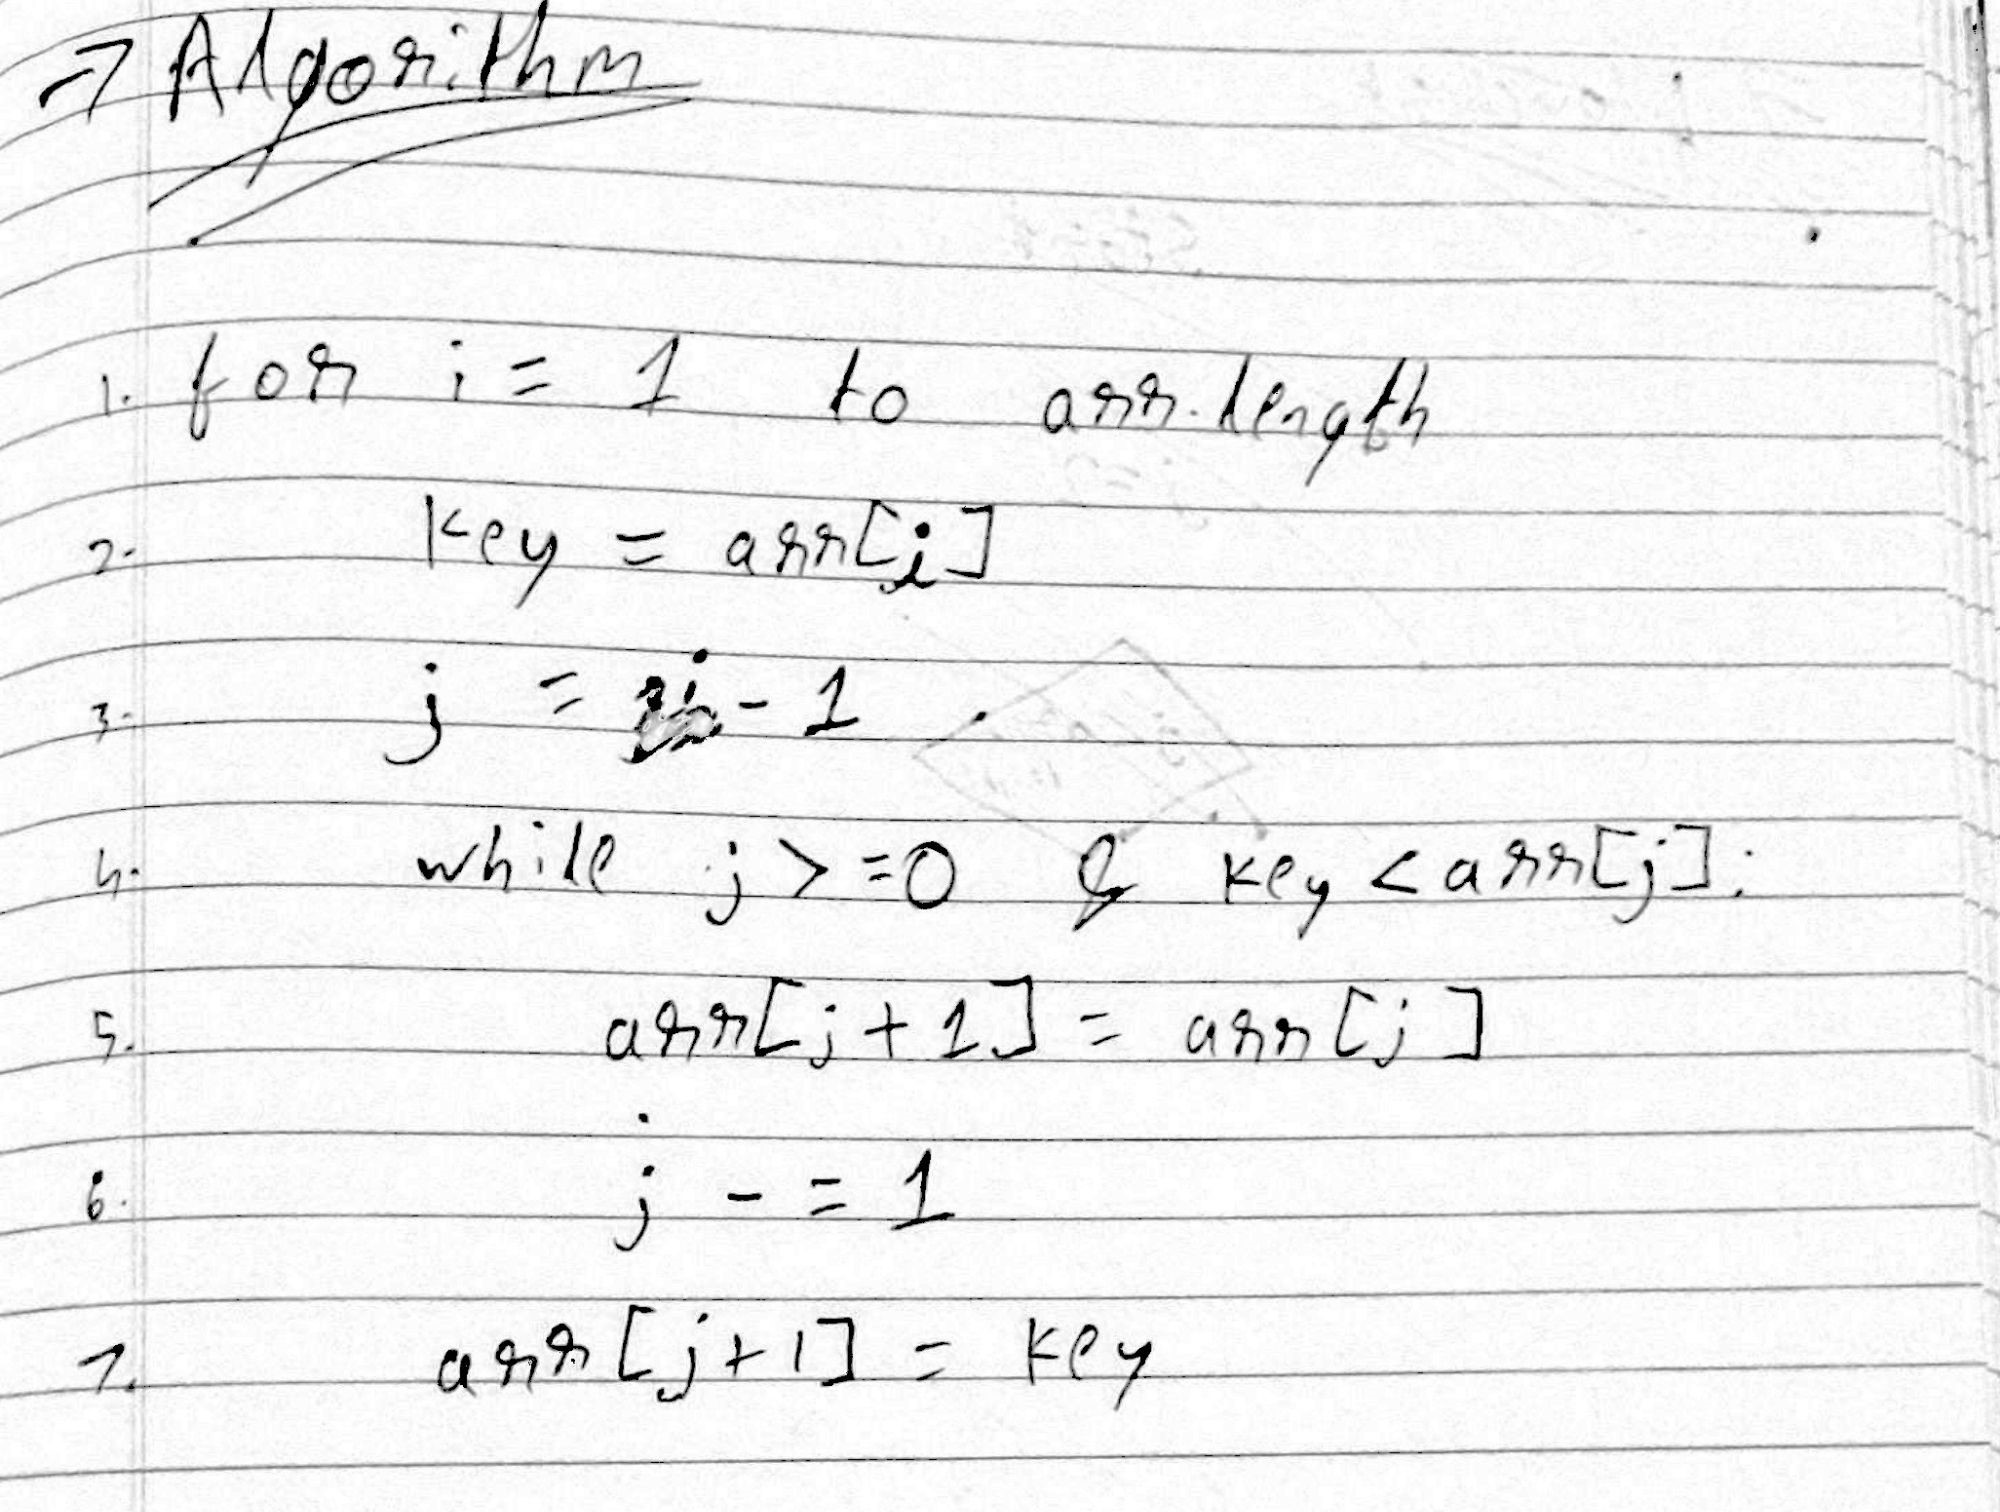 → Algorithm
1. for i = 1 to arr.length
2. key = arr[i]
3. j = i - 1
4. while j >=0 & key < arr[j]:
5. arr[j+1] = arr[j]
6. j -= 1
7. arr[j+1] = key